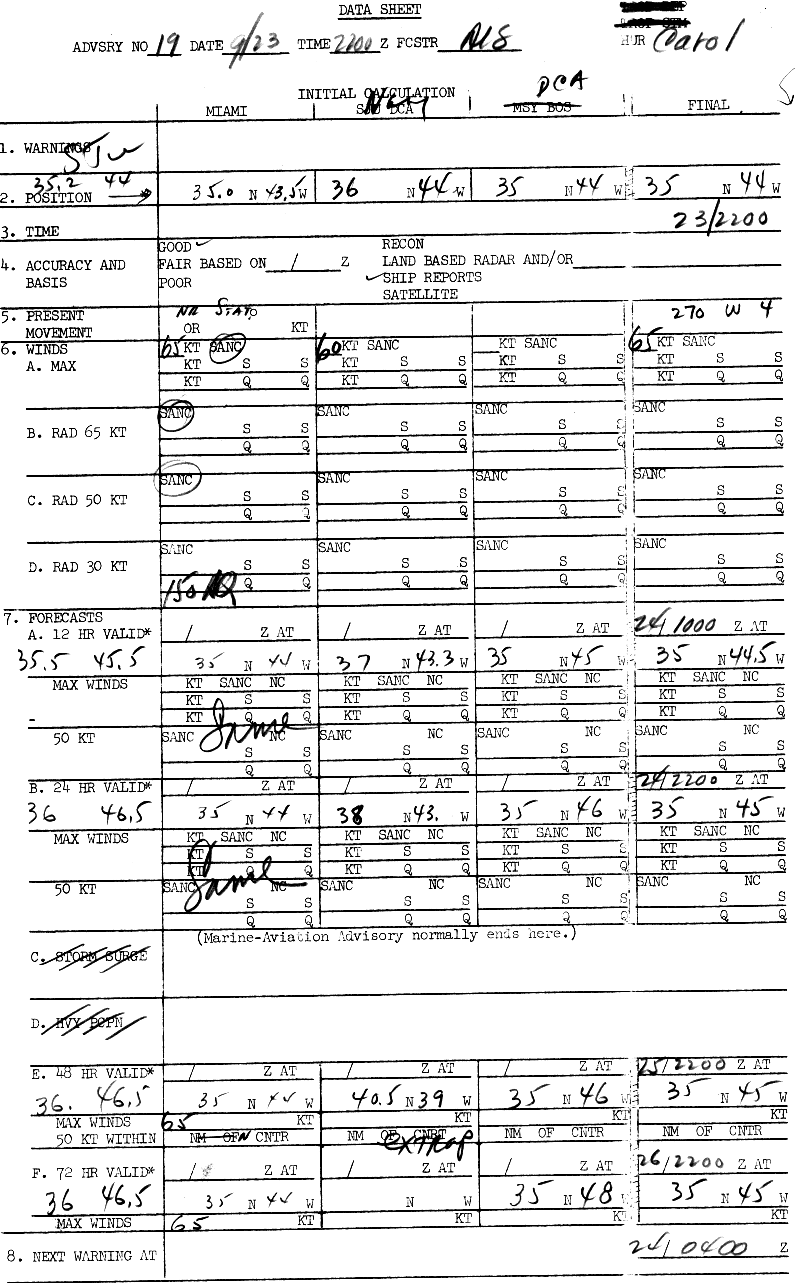 DATA SHEET
ADVSRY NO 19 DATE 9/23 TIME 2200 Z FCSTR
HUR Carol
INITIAL CALCULATION
MIAMI Navy SJU DCA DCA MSY BOS FINAL
1. WARNINGS
SJU
35.2 44
2. POSITION 35.0 N 43.5 W 36 N 44 W 35 N 44 W 35 N 44 W
3. TIME 23/2200
4. ACCURACY AND BASIS
GOOD RECON
FAIR BASED ON / Z LAND BASED RADAR AND/OR
POOR SHIP REPORTS
SATELLITE
5. PRESENT MOVEMENT NR STAT. OR KT 270 W 4
6. WINDS 65 KT SANC 60 KT SANC KT SANC 65 KT SANC
A. MAX KT S S KT S S KT S S KT S S
KT Q Q KT Q Q KT Q Q KT Q Q
SANC SANC SANC SANC
B. RAD 65 KT S S S S S S S S
Q Q Q Q Q Q Q Q
SANC SANC SANC SANC
C. RAD 50 KT S S S S S S S S
Q Q Q Q Q Q Q Q
SANC SANC SANC SANC
D. RAD 30 KT S S S S S S S S
150 Q Q Q Q Q Q Q Q
7. FORECASTS
A. 12 HR VALID* / Z AT / Z AT / Z AT 24/1000 Z AT
35.5 45.5 35 N 44 W 37 N 43.3 W 35 N 45 W 35 N 44.5 W
MAX WINDS KT SANC NC KT SANC NC KT SANC NC KT SANC NC
KT S S KT S S KT S S KT S S
KT Q Q KT Q Q KT Q Q KT Q Q
Same
50 KT SANC NC SANC NC SANC NC SANC NC
S S S S S S S S
Q Q Q Q Q Q Q Q
B. 24 HR VALID* / Z AT / Z AT / Z AT 24/2200 Z AT
36 46.5 35 N 44 W 38 N 43. W 35 N 46 W 35 N 45 W
MAX WINDS KT SANC NC KT SANC NC KT SANC NC KT SANC NC
KT S S KT S S KT S S KT S S
KT Q Q KT Q Q KT Q Q KT Q Q
Same
50 KT SANC NC SANC NC SANC NC SANC NC
S S S S S S S S
Q Q Q Q Q Q Q Q
(Marine-Aviation Advisory normally ends here.)
C. STORM SURGE
D. HVY PCPN
E. 48 HR VALID* / Z AT / Z AT / Z AT 25/2200 Z AT
36. 46.5 35 N 44 W 40.5 N 39 W 35 N 46 W 35 N 45 W
MAX WINDS 65 KT KT KT KT
50 KT WITHIN NM OF CNTR NM OF CNRT NM OF CNTR NM OF CNTR
extrap
F. 72 HR VALID* / Z AT / Z AT / Z AT 26/2200 Z AT
36 46.5 35 N 44 W N W 35 N 48 W 35 N 45 W
MAX WINDS 65 KT KT KT KT
8. NEXT WARNING AT 24/0400 Z